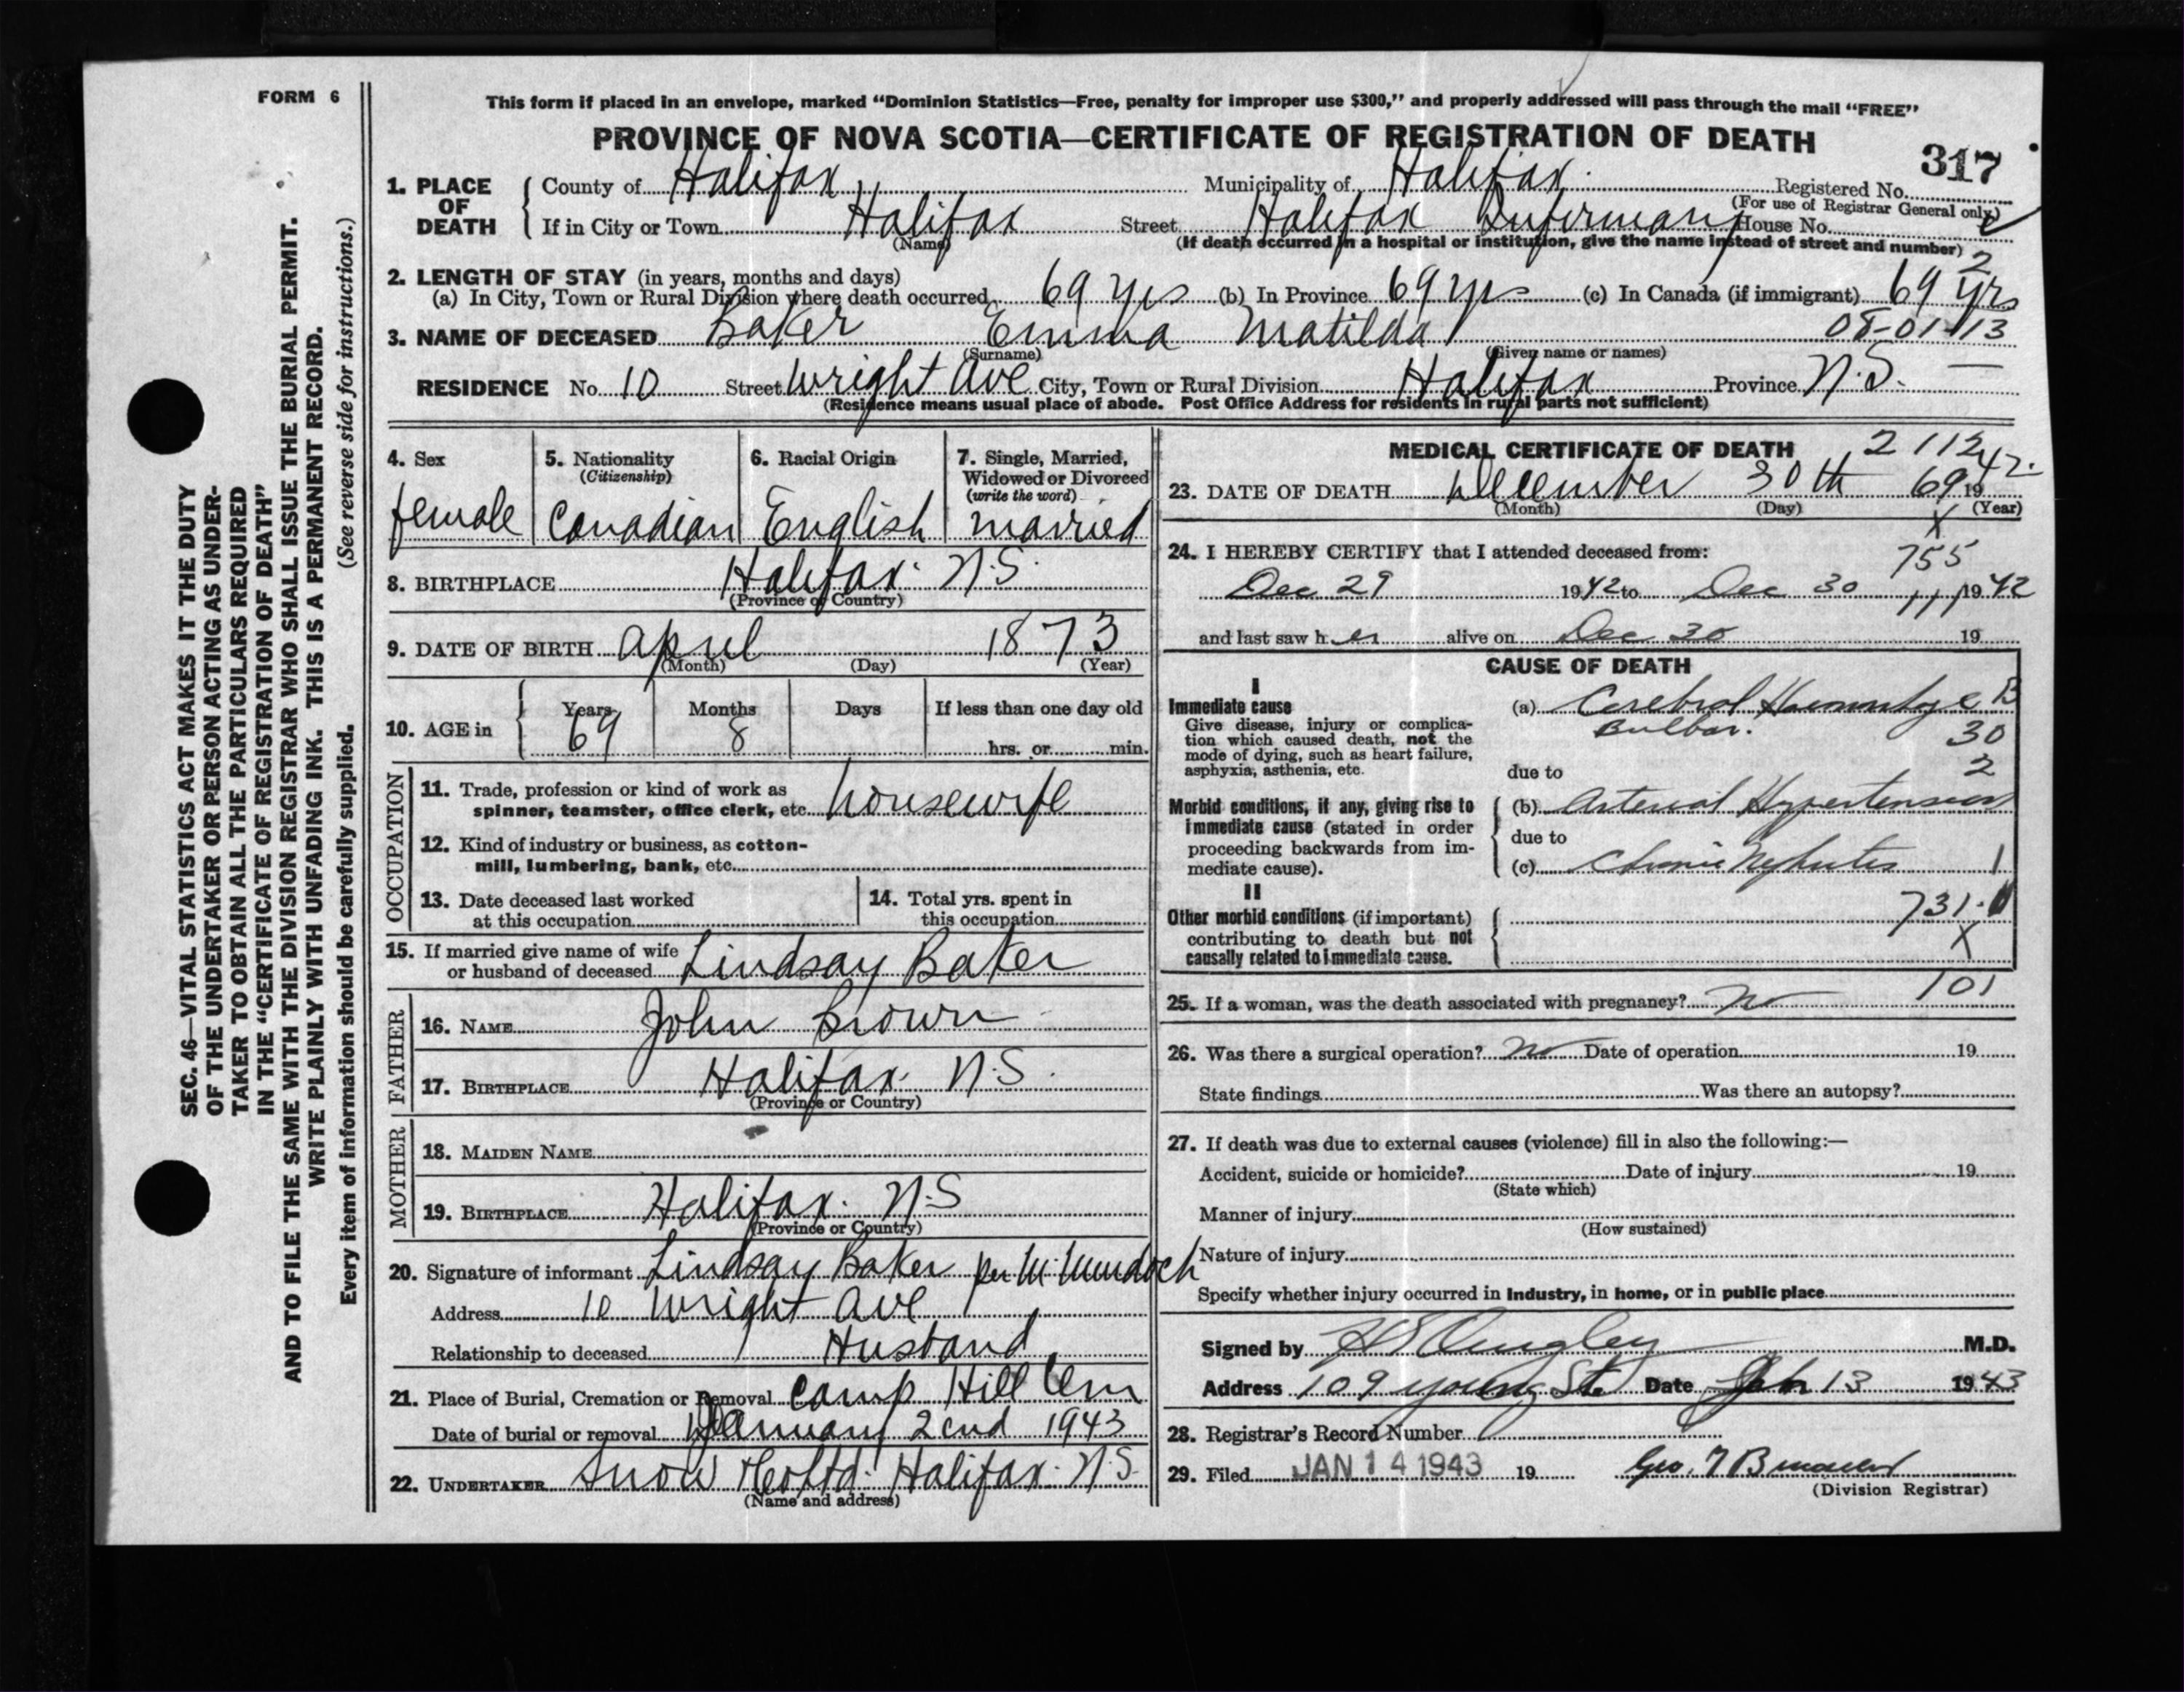 FORM 6
This form if placed in an envelope, marked “Dominion Statistics—Free, penalty for improper use $300,” and properly addressed will pass through the mail “FREE”
PROVINCE OF NOVA SCOTIA—CERTIFICATE OF REGISTRATION OF DEATH
317
1. PLACE OF DEATH
County of Halifax Municipality of Halifax Registered No.
(For use of Registrar General only)
If in City or Town Halifax Street Halifax Infirmary House No.
(Name) (If death occurred in a hospital or institution, give the name instead of street and number)
2
2. LENGTH OF STAY (in years, months and days)
(a) In City, Town or Rural Division where death occurred 69 yrs (b) In Province 69 yrs (c) In Canada (if immigrant) 69 yrs
08-01-13
3. NAME OF DECEASED Baker Emma Matilda
(Surname) (Given name or names)
RESIDENCE No. 10 Street Wright Ave City, Town or Rural Division Halifax Province N.S. —
(Residence means usual place of abode. Post Office Address for residents in rural parts not sufficient)
4. Sex
female
5. Nationality
(Citizenship)
Canadian
6. Racial Origin
English
7. Single, Married,
Widowed or Divorced
(write the word)
married
8. BIRTHPLACE Halifax. N.S.
(Province or Country)
9. DATE OF BIRTH April 1873
(Month) (Day) (Year)
10. AGE in
Years Months Days If less than one day old
69 8 hrs. or min.
OCCUPATION
11. Trade, profession or kind of work as
spinner, teamster, office clerk, etc. housewife
12. Kind of industry or business, as cotton-
mill, lumbering, bank, etc.
13. Date deceased last worked
at this occupation
14. Total yrs. spent in
this occupation
15. If married give name of wife
or husband of deceased Lindsay Baker
FATHER
16. NAME John Brown
17. BIRTHPLACE Halifax. N.S.
(Province or Country)
MOTHER
18. MAIDEN NAME
19. BIRTHPLACE Halifax. N.S
(Province or Country)
20. Signature of informant Lindsay Baker per M. Murdoch
Address 10 Wright Ave
Relationship to deceased Husband
21. Place of Burial, Cremation or Removal Camp Hill Cem
Date of burial or removal January 2cnd 1943
22. UNDERTAKER Snow & Co Ltd. Halifax. N.S.
(Name and address)
MEDICAL CERTIFICATE OF DEATH
2 112
23. DATE OF DEATH December 30th 69 1942.
(Month) (Day) (Year)
X
24. I HEREBY CERTIFY that I attended deceased from:
755
Dec 29 1942 to Dec 30 1942
111
and last saw her alive on Dec 30 19
CAUSE OF DEATH
I
Immediate cause
Give disease, injury or complica-
tion which caused death, not the
mode of dying, such as heart failure,
asphyxia, asthenia, etc.
(a) Cerebral Haemorrhage B
Bulbar. 30
due to 2
Morbid conditions, if any, giving rise to
immediate cause (stated in order
proceeding backwards from im-
mediate cause).
(b) Arterial Hypertension
due to
(c) Chronic Nephritis 1
II
Other morbid conditions (if important)
contributing to death but not
causally related to immediate cause.
731.
X
101
25. If a woman, was the death associated with pregnancy? no
26. Was there a surgical operation? no Date of operation 19
State findings Was there an autopsy?
27. If death was due to external causes (violence) fill in also the following:—
Accident, suicide or homicide? Date of injury 19
(State which)
Manner of injury
(How sustained)
Nature of injury
Specify whether injury occurred in Industry, in home, or in public place
Signed by M.D.
Address 109 Young St. Date Jan 13 1943
28. Registrar's Record Number
29. Filed JAN 14 1943 19
(Division Registrar)
SEC. 46—VITAL STATISTICS ACT MAKES IT THE DUTY
OF THE UNDERTAKER OR PERSON ACTING AS UNDER-
TAKER TO OBTAIN ALL THE PARTICULARS REQUIRED
IN THE “CERTIFICATE OF REGISTRATION OF DEATH”
AND TO FILE THE SAME WITH THE DIVISION REGISTRAR WHO SHALL ISSUE THE BURIAL PERMIT.
WRITE PLAINLY WITH UNFADING INK. THIS IS A PERMANENT RECORD.
Every item of information should be carefully supplied. (See reverse side for instructions.)